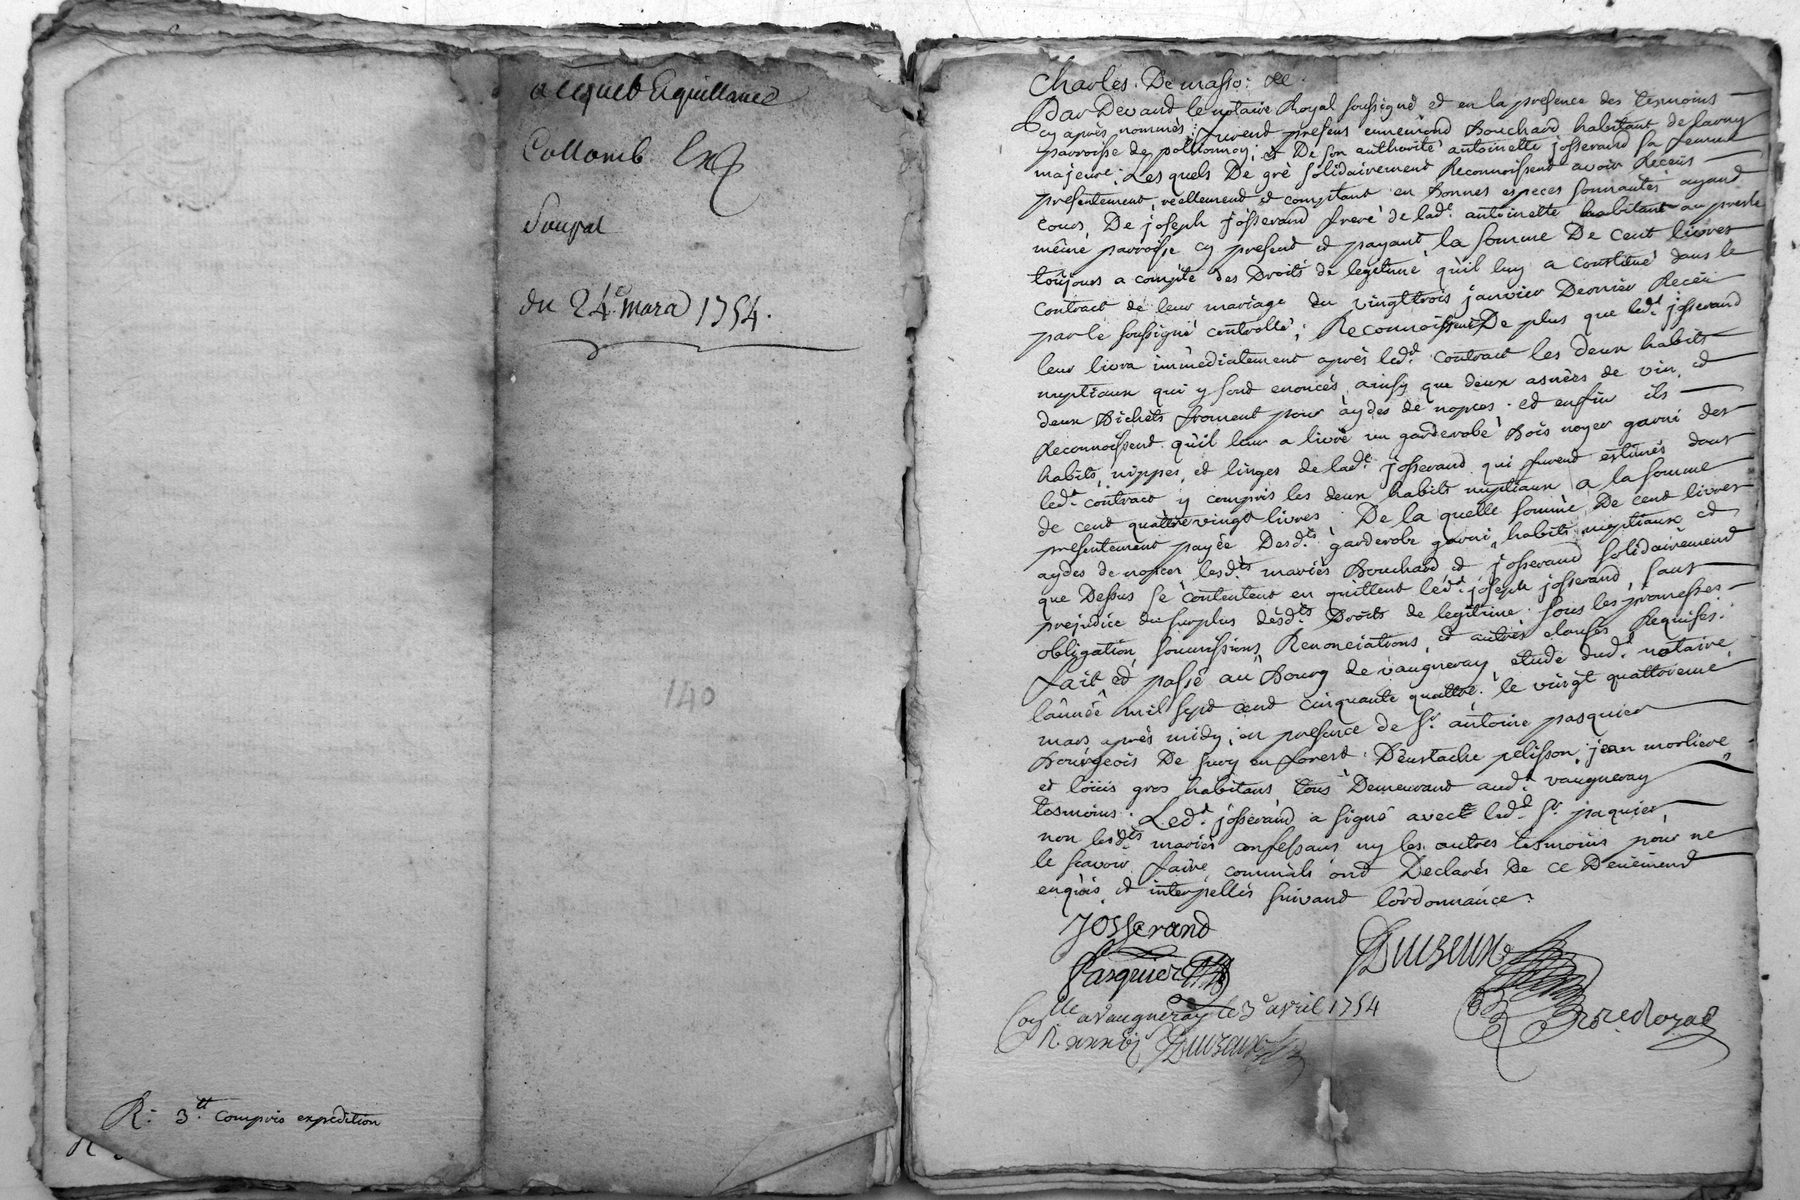 acquit & quittance
Collomb
Souprat
du 24e. mars 1754.
140
R: 3tt. compris expedition
Charles. De masso: &c.
Par Devand le notaire Royal soussigné et en la presence des tesmoins
cy après nommés; furent presens ennemond Bouchard habitant de larny
parroisse de pollionnay; et De son authorité antoinette josserand sa femme
majeure; Lesquels De gré solidairement Reconnoissent avoir Receus
presentement, réellement et comptant en bonnes especes sonnantes ayand
cours, De joseph josserand frere de lade. antoinette habitant au
même parroisse cy present et payant la somme De cent livres
toujours a compte des Droits de legitime qu'il luy a constitué dans le
contract de leur mariage du vingttrois janvier Dernier Receu
par le soussigné controllé; Reconnoissent De plus que ledt. josserand
leur livra immédiatement après ledt. contract les deux habits
nuptiaux qui y sont enoncés, ainsy que deux asnées de vin, et
deux Bichets froment pour aydes de nopces. et enfin ils
Reconnoissent qu'il leur a livré un garderobe bois noyer garni des
habits, nippes, et linges de lade. josserand qui furent estimés dans
ledt. contract y compris les deux habits nuptiaux a la somme
de cent quattrevingt livres. De la quelle somme De cent livres
presentement payée Desdts. garderobe garni, habits nuptiaux et
aydes de nopces lesdts. mariés Bouchard et josserand solidairement
que Dessus se contentent en quittent ledt. joseph josserand, sans
prejudice du surplus desdts. Droits de legitime. sous les promesses
obligation, soumissions, Renonciations, et autres clauses Requises.
fait et passé au Bourg de vaugneray étude dudt. notaire
l'année mil sept cent cinquante quattre. le vingt quattrieme
mars après midy, en presence de Sr. antoine pasquier
Bourgeois De sury en forest. D'eustache pelisson, jean morliere
et loüis gros habitans tous Demeurand audt. vaugneray
tesmoins. Ledt. josserand a signé avec ledt. Sr. paquier
non lesdts. mariés confessans ny les autres tesmoins pour ne
le scavoir faire, comm'ils ont Declarés De ce Deüement
enquis et interpellés suivand l'ordonnance.
Josserand
Pasquier
Con.lle a Vaugneray le 3e avril 1754
R.